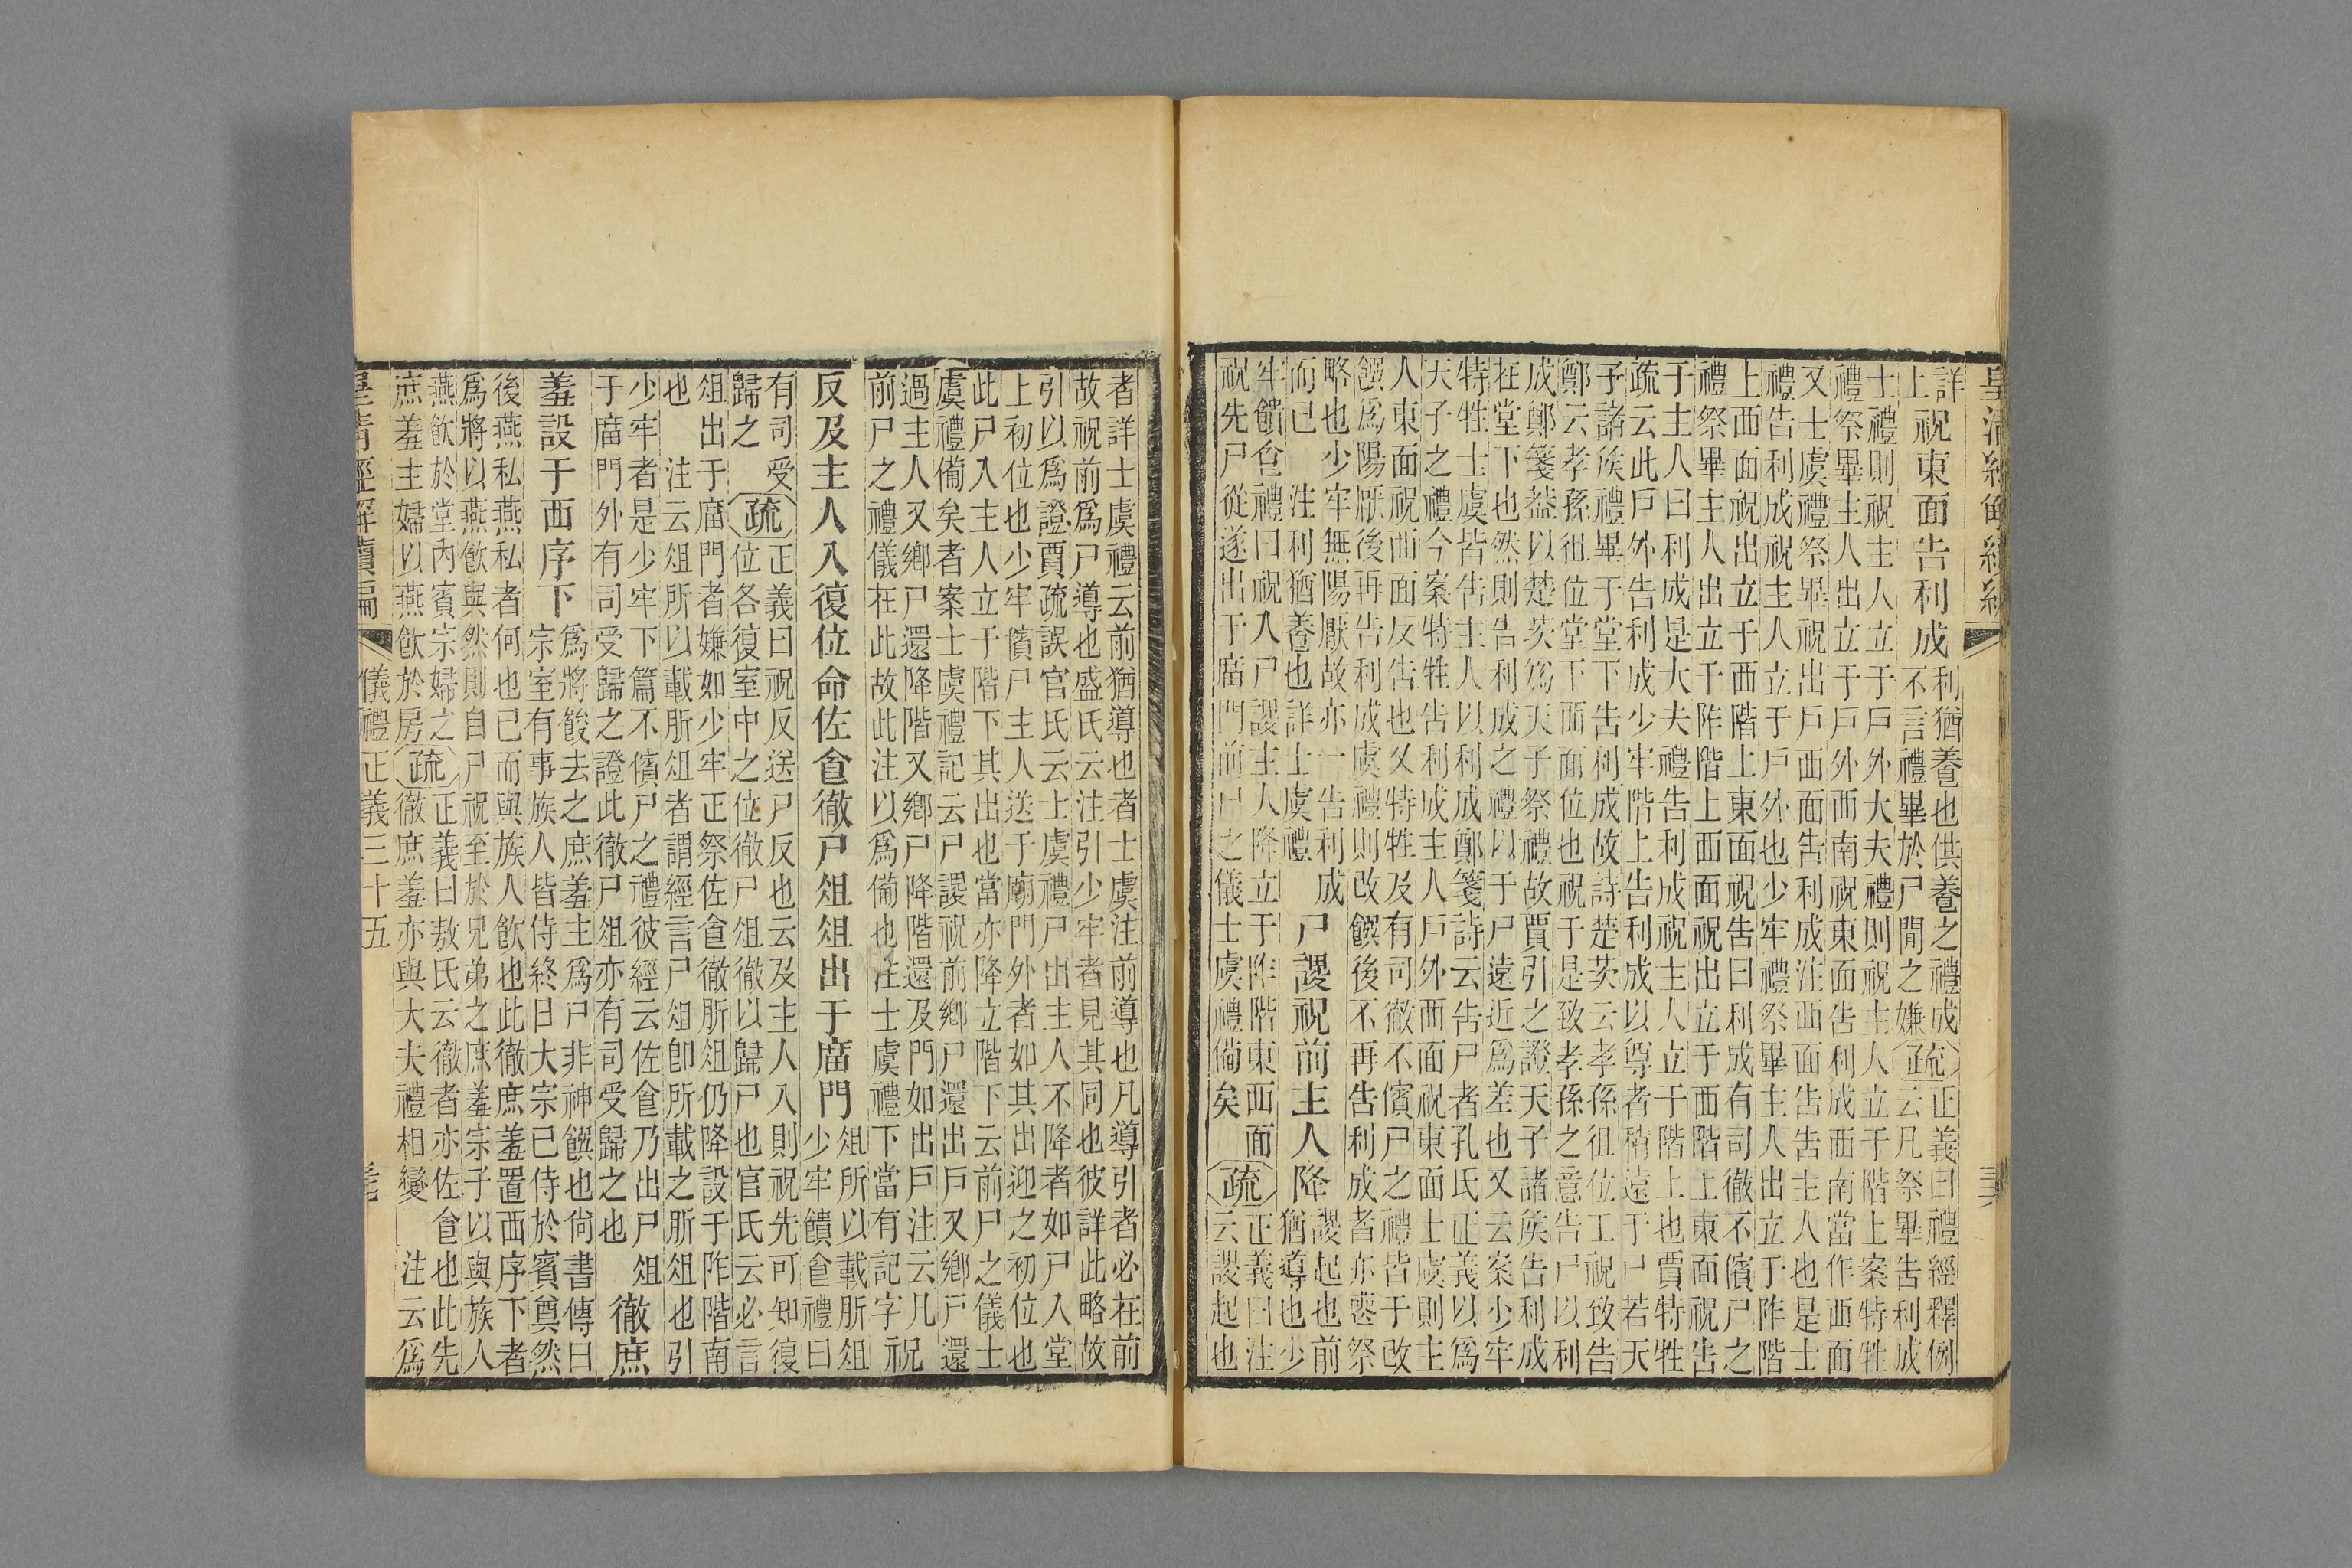 皇清經解續編
詳
上
祝東面告利成
利猶養也供養之禮成疏正義曰禮經釋例
不言禮畢於尸閒之嫌云凡祭畢告利成
士禮則祝主人立于戶外大夫禮則祝主人立于階上案特牲
禮祭畢主人出立于戶外西南祝東面告利成西南當作西面
又士虞禮祭畢祝出戶西面告利成注西面告告主人也是士
禮告利成祝主人立于戶外也少牢禮祭畢主人出立于阼階
上西面祝出立于西階上東面祝告曰利成有司徹不儐尸之
禮祭畢主人出立于阼階上西面祝出立于西階上東面祝告
于主人曰利成是大夫禮告利成祝主人立于階上也賈特牲
疏云此戶外告利成少牢階上告利成以尊者稍遠于尸若天
子諸侯禮畢于堂下告利成故詩楚茨云孝孫徂位工祝致告
鄭云孝孫徂位堂下西面位也祝于是致孝孫之意告尸以利
成鄭箋蓋以楚茨爲天子祭禮故賈引之證天子諸侯告利成
在堂下也然則告利成之禮以于尸遠近爲差也又云案少牢
特牲士虞皆告主人以利成鄭箋詩云告尸者孔氏正義以爲
天子之禮今案特牲告利成主人戶外西面祝東面士虞則主
人東面祝西面反吉也又特牲及有司徹不儐尸之禮皆于改
饌爲陽厭後再告利成虞禮則改饌後不再告利成者亦喪祭
略也少牢無陽厭故亦一告利成
而已 注利猶養也詳士虞禮
尸謖祝前主人降
謖起也前
猶導也少
牢饋食禮曰祝入尸謖主人降立于阼階東西面疏正義曰注
祝先尸從遂出于庿門前尸之儀士虞禮備矣云謖起也
者詳士虞禮云前猶導也者士虞注前導也凡導引者必在前
故祝前爲尸導也盛氏云注引少牢者見其同也彼詳此略故
引以爲證賈疏誤官氏云士虞禮尸出主人不降者如尸入堂
上初位也少牢儐尸主人送于廟門外者如其出迎之初位也
此尸入主人立于階下其出也當亦降立階下云前尸之儀士
虞禮備矣者案士虞禮記云尸謖祝前鄉尸還出戶又鄉尸還
過主人又鄉尸還降階又鄉尸降階還及門如出戶注云凡
前尸之禮儀在此故此注以爲備也注士虞禮下當有記字
祝
反及主人入復位命佐食徹尸俎俎出于庿門
俎所以載肵俎
少牢饋食禮曰
有司受疏正義曰祝反送尸反也云及主人入則祝先可知復
歸之位各復室中之位徹尸俎徹以歸尸也官氏云必言
俎出于庿門者嫌如少牢正祭佐食徹肵俎仍降設于阼階南
也 注云俎所以載肵俎者謂經言尸俎卽所載之肵俎也引
少牢者是少牢下篇不儐尸之禮彼經云佐食乃出尸俎
于庿門外有司受歸之證此徹尸俎亦有司受歸之也
徹庶
羞設于西序下
爲將餕去之庶羞主爲尸非神饌也尚書傳曰
宗室有事族人皆侍終日大宗已侍於賓奠然
後燕私燕私者何也已而與族人飲也此徹庶羞置西序下者
爲將以燕飲與然則自尸祝至於兄弟之庶羞宗子以與族人
燕飲於堂內賓宗婦之疏正義曰敖氏云徹者亦佐食也此先
庶羞主婦以燕飲於房徹庶羞亦與大夫禮相變 注云爲
皇清經解續編 儀禮正義三十五